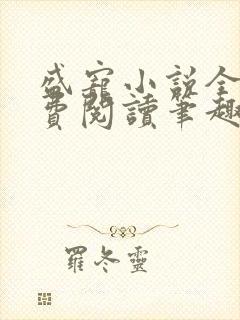 盛寵小說全
費閱讀筆趣
羅冬靈